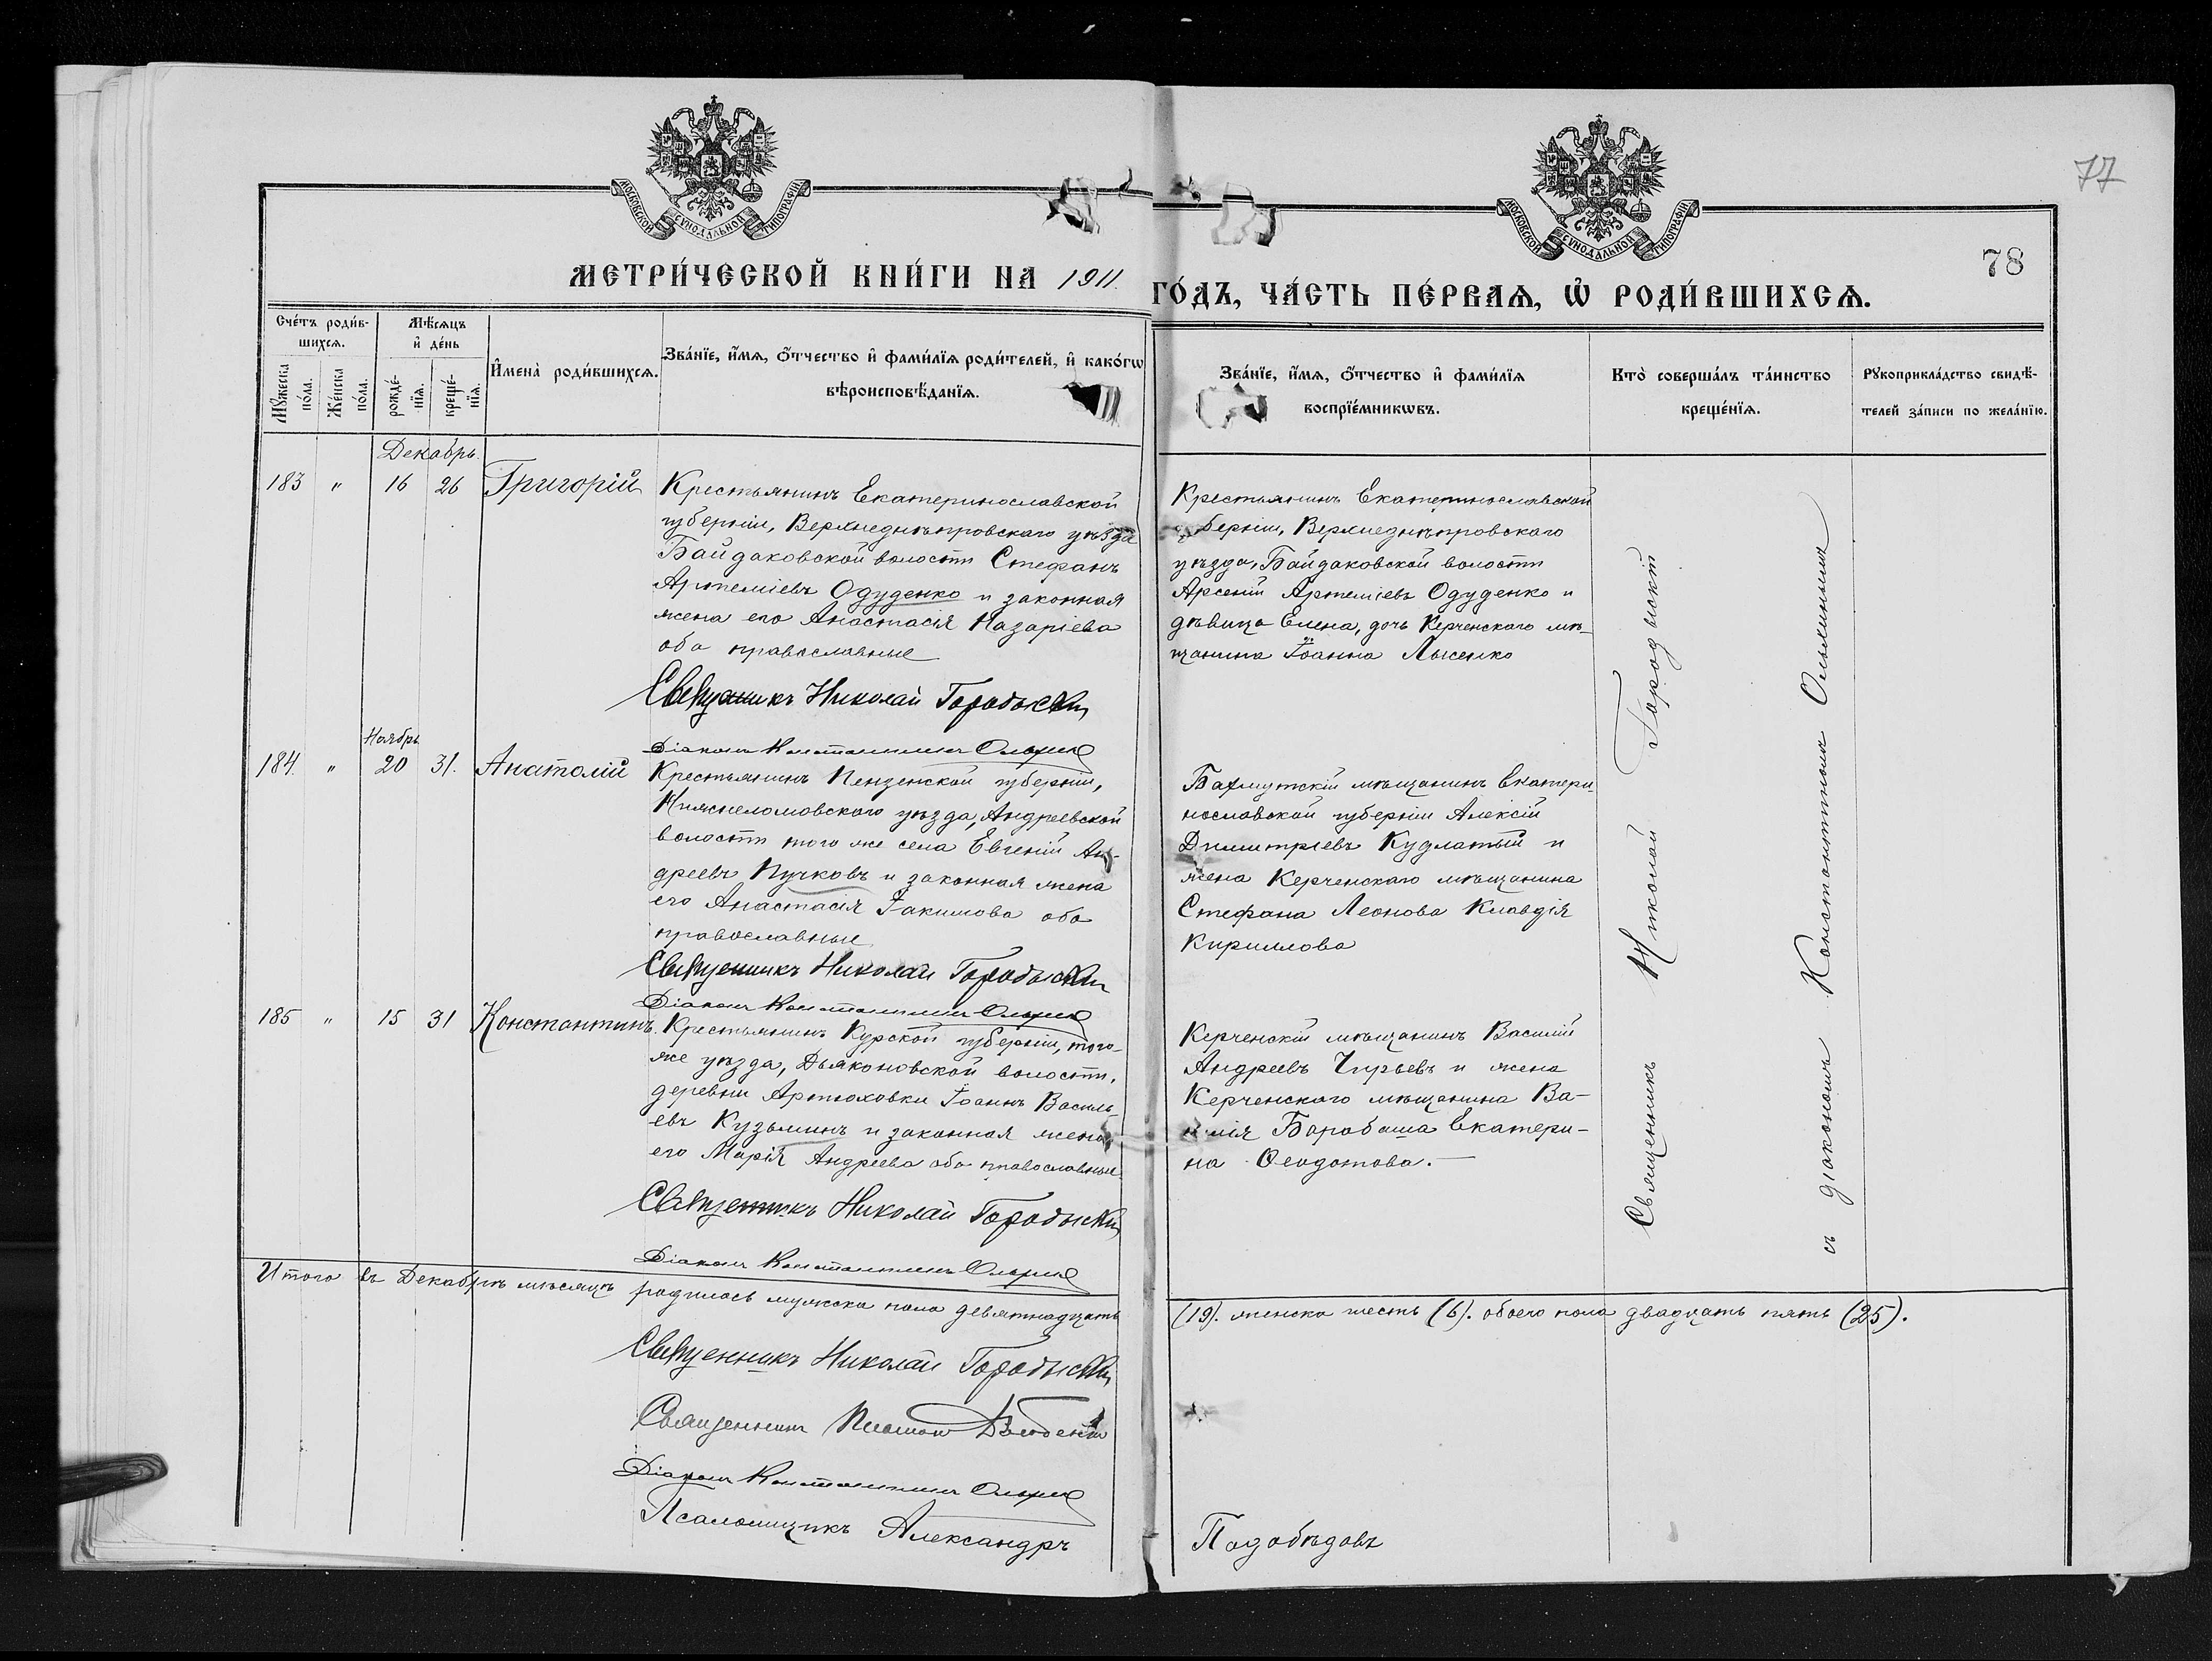 77
МОСКОВСКОЙ СУНОДАЛЬНОЙ ТИПОГРАФІИ
МОСКОВСКОЙ СУНОДАЛЬНОЙ ТИПОГРАФІИ
78
МЕТРИ́ЧЕСКОЙ КНИ́ГИ НА 1911
ГО́ДЪ, ЧА́СТЬ ПЕ́РВАѦ, Ѽ РОДИ́ВШИХСѦ.
Сче́тъ роди́в-
шихсѧ.
Мꙋ́жеска по́ла.
Же́нска по́ла.
Мѣ́сѧцъ
и҆ де́нь
рожде́-
нїѧ.
креще́-
нїѧ.
И҆мена̀ роди́вшихсѧ.
Зва́нїе, и҆́мѧ, ѻ҆́тчество и҆ фами́лїѧ роди́телей, и҆ како́гѡ
вѣроисповѣ́данїѧ.
Зва́нїе, и҆́мѧ, ѻ҆́тчество и҆ фами́лїѧ
воспрїе́мникѡвъ.
Кто̀ соверша́лъ та́инство
креще́нїѧ.
Рꙋкоприкла́дство свидѣ́-
телей за́писи по жела́нїю.
Декабрь.
183 " 16 26 Григорій
Крестьянинъ Екатеринославской
губерніи, Верхнеднѣпровскаго уѣзда
Байдаковской волости Стефанъ
Артеміевъ Одуденко и законная
жена его Анастасія Назаріева
оба православные
Священникъ Николай Городыскій
Діаконъ Константинъ
Крестьянинъ Екатеринославской
губерніи, Верхнеднѣпровскаго
уѣзда, Байдаковской волости
Арсеній Артеміевъ Одуденко и
дѣвица Елена, дочь Керченскаго мѣ-
щанина Іоанна Лысенко
Ноябрь
184. " 20 31. Анатолій
Крестьянинъ Пензенской губерніи,
Нижнеломовскаго уѣзда, Андреевской
волости того же села Евгеній Ан-
дреевъ Пучковъ и законная жена
его Анастасія Іакимова оба
православные
Священникъ Николай Городыскій
Діаконъ Константинъ
Бахмутскій мѣщанинъ Екатери-
нославской губерніи Алексій
Димитріевъ Кудлатый и
жена Керченскаго мѣщанина
Стефана Леонова Клавдія
Кириллова
185 " 15 31 Константинъ.
Крестьянинъ Курской губерніи, того-
же уѣзда, Дьяконовской волости,
деревни Артюховки Іоаннъ Василь-
евъ Кузьминъ и законная жена
его Марія Андреева оба православные
Священникъ Николай Городыскій
Діаконъ Константинъ
Керченскій мѣщанинъ Василій
Андреевъ Чирьевъ и жена
Керченскаго мѣщанина Ва-
Барабаша Екатери-
на Ѳеодотова.
Священникъ Николай Городыскій
съ діакономъ Константиномъ
Итого въ Декабрѣ мѣсяцѣ родилось мужска пола девятнадцать
(19). женска шесть (6). обоего пола двадцать пять (25).
Священникъ Николай Городыскій
Священникъ
Діаконъ Константинъ
Псаломщикъ Александръ
Подобѣдовъ